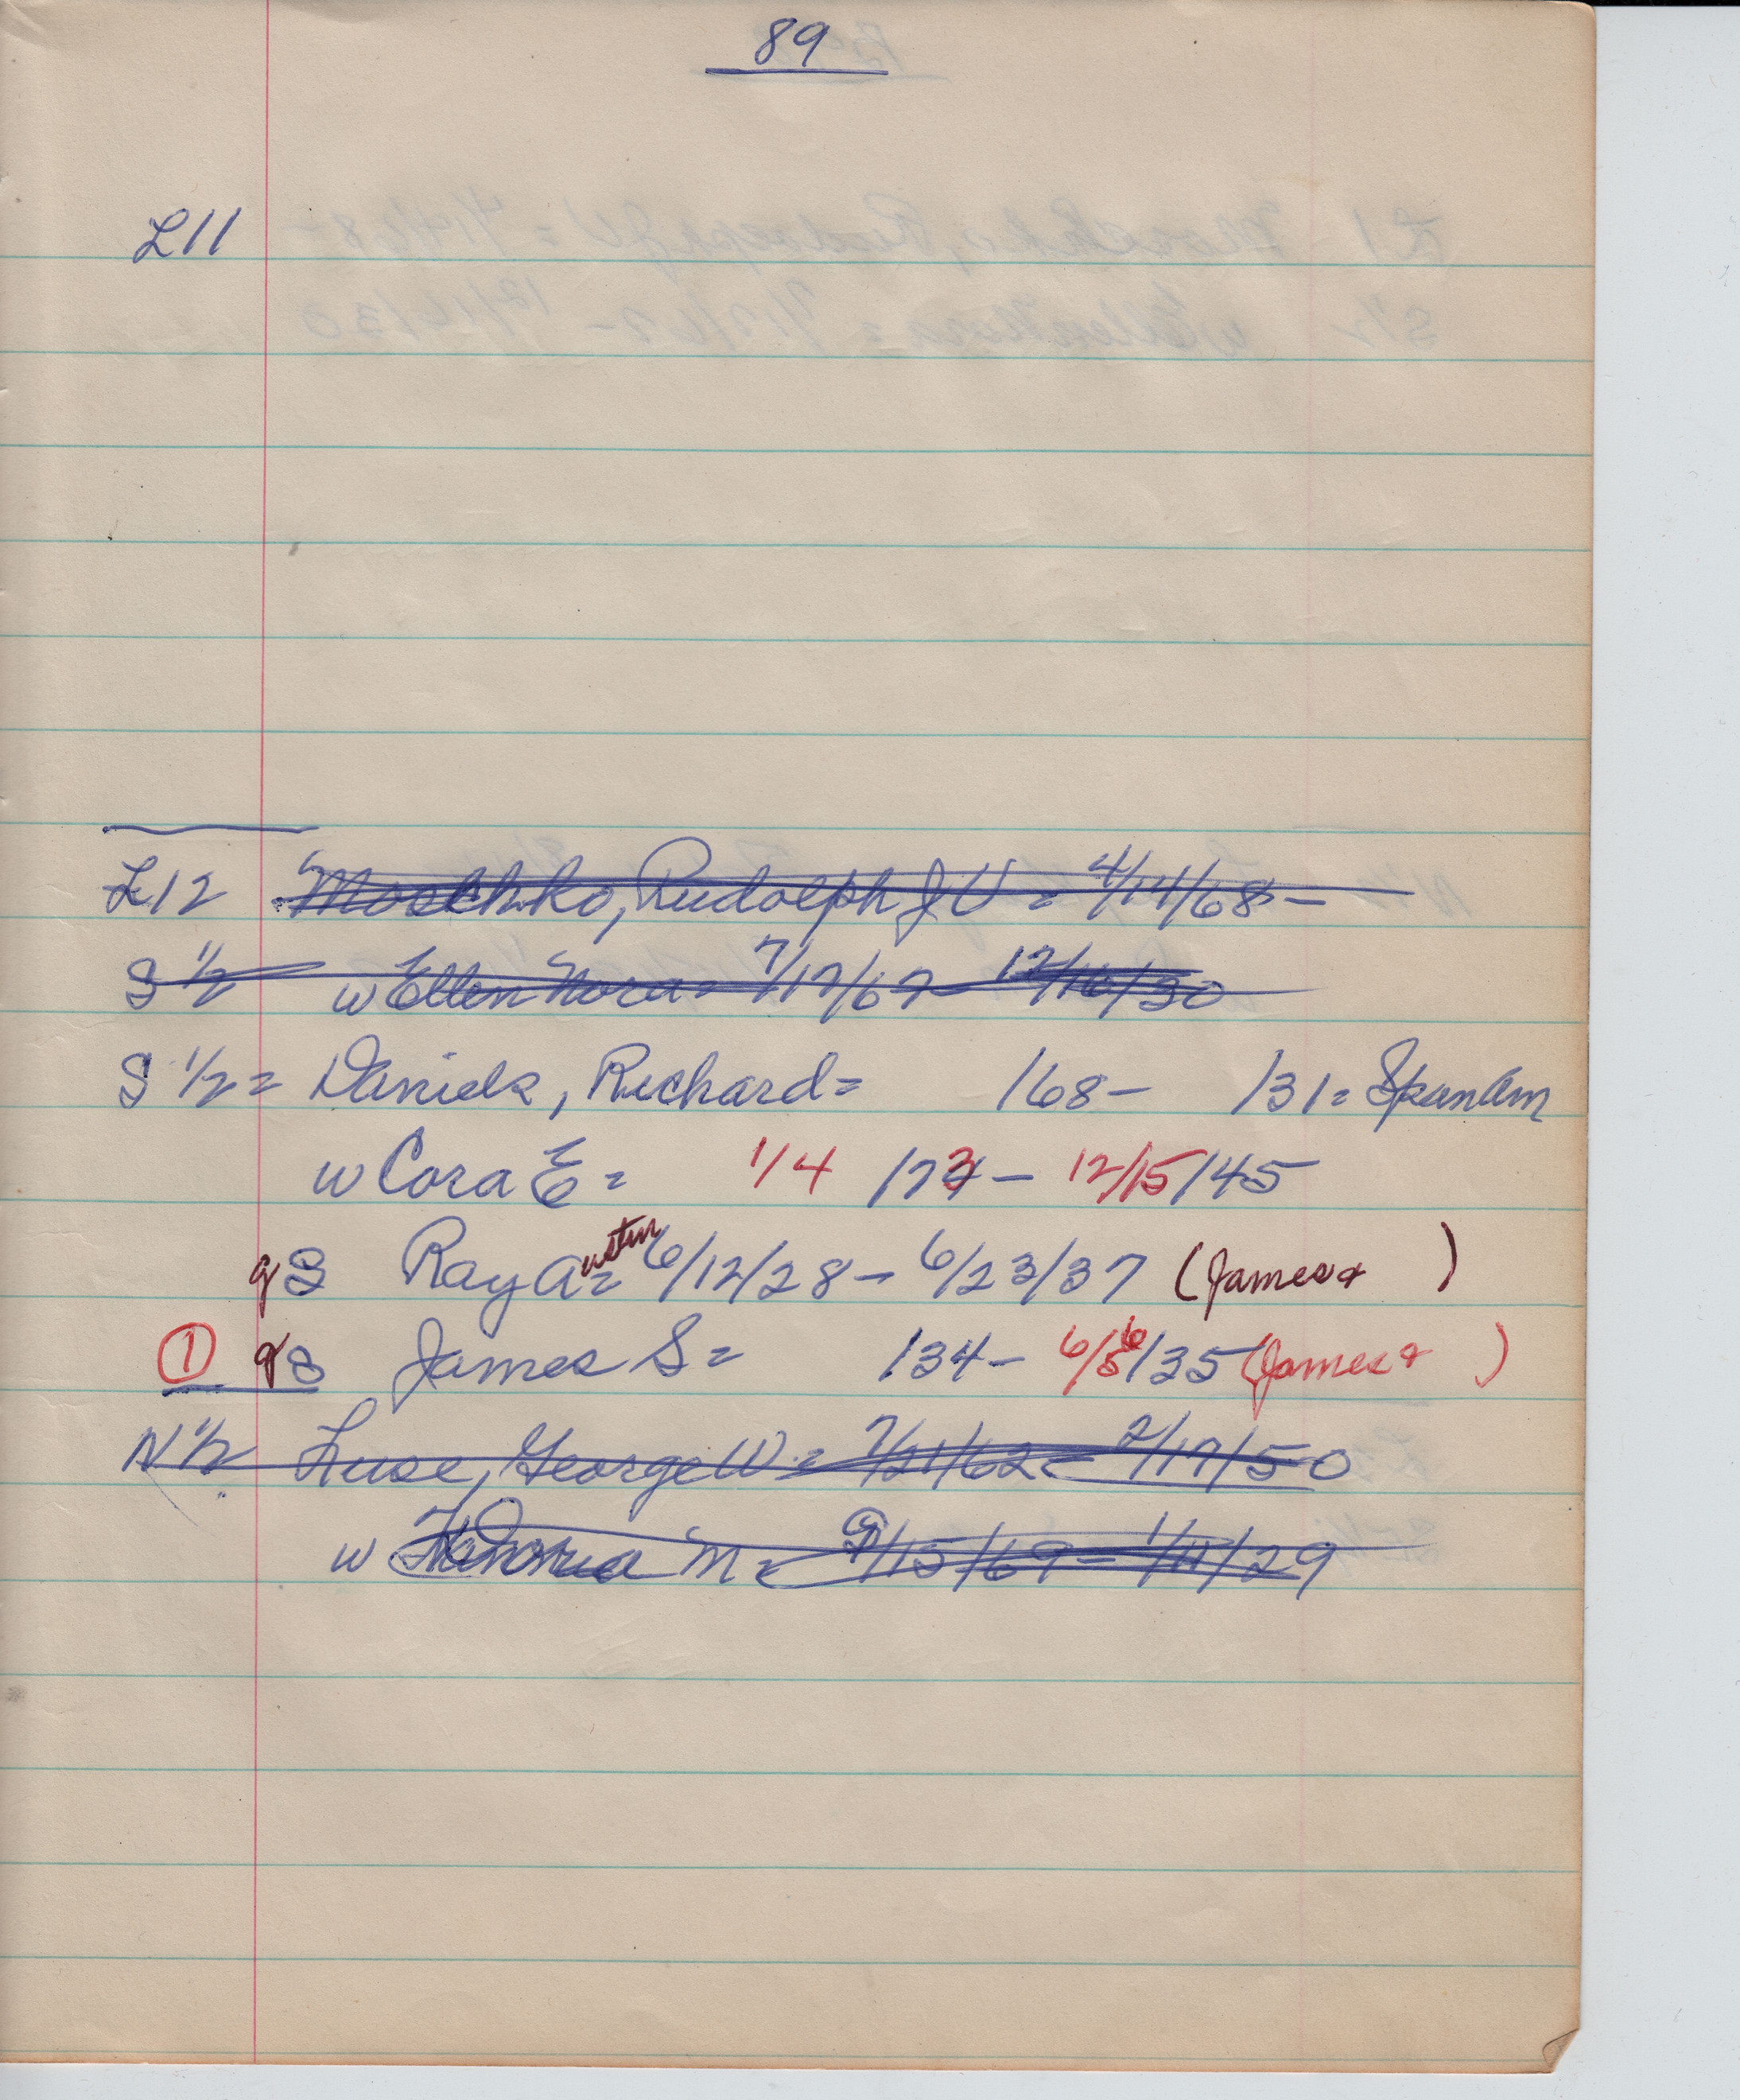 89
L11
L12 Moschko, Rudolph J V = 4/14/68 -
S 1/2 w Ellen Nora = 7/17/67 - 12/16/30
S 1/2 = Daniels, Richard = /68 - /31 = SpanAm
w Cora E = 1/4 /73 - 12/15/45
gS Ray Austin = 6/12/28 - 6/23/37 (James + )
① gS James S = /34 - 6/6/35 (James + )
N 1/2 Luse, George W = 7/21/62 - 2/17/50
w M = 9/15/69 - 1/11/29